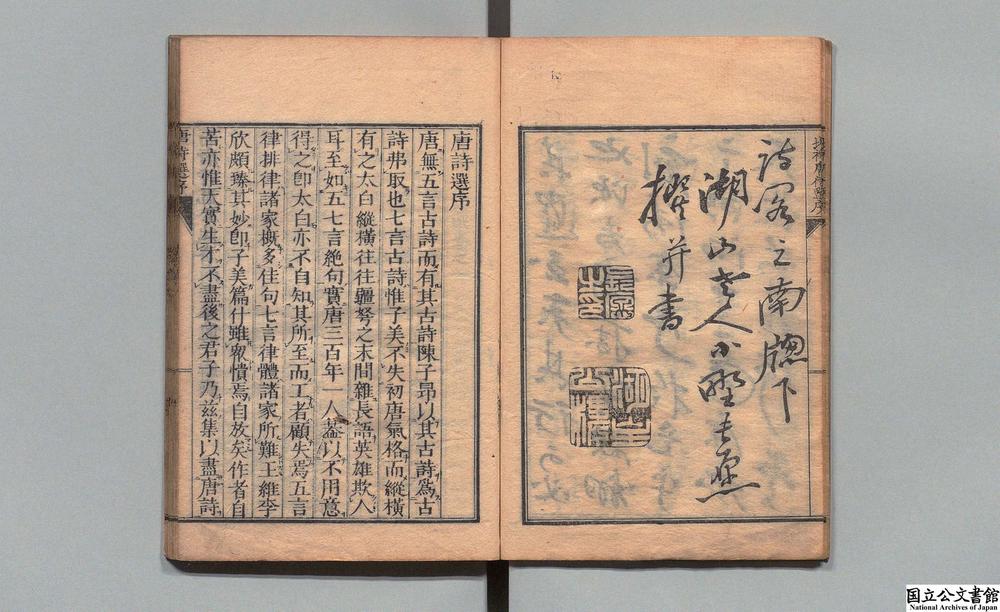 詩之南牕下
湖山老人小野長愿
撰并書
唐詩選序
唐無五言古詩而有其古詩陳子昂以其古詩爲古
詩弗取也七言古詩惟子美不失初唐氣格而縱橫
有之太白縱橫往往疆弩之末間雜長語英雄欺人
耳至如五七言絶句實唐三百年一人葢以不用意
得之卽太白亦不自知其所至而工者顧失焉五言
律排律諸家槪多佳句七言律體諸家所難王維李
欣頗臻其妙卽子美篇什雖衆憒焉自放矣作者自
苦亦惟天實生才不盡後之君子乃茲集以盡唐詩
唐詩選序
国立公文書館
National Archives of Japan